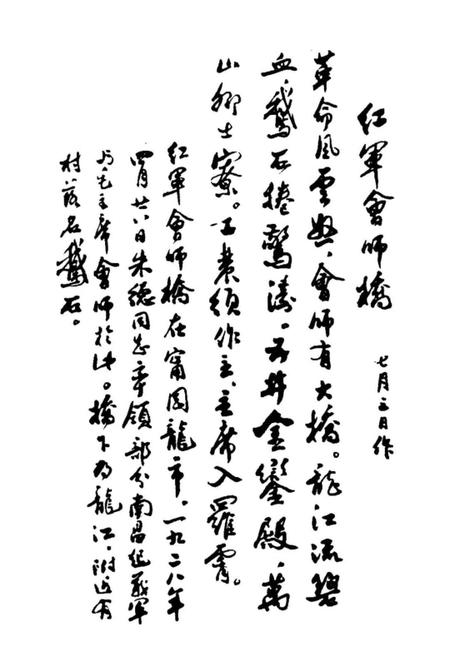 红軍會師橋
七月三日作
革命風雲怒、會師有大橋。龍江流碧
血,鵝石捲驚濤。五井金鑾殿,萬
山鄉士寮。工農須作主、主席入羅霄。
红軍會師橋在甯岡龍市,一九二八年
四月廿八日朱德同志率領部分南昌起義軍
与毛主席會師於此。橋下为龍江,附近有
村落名鵝石。